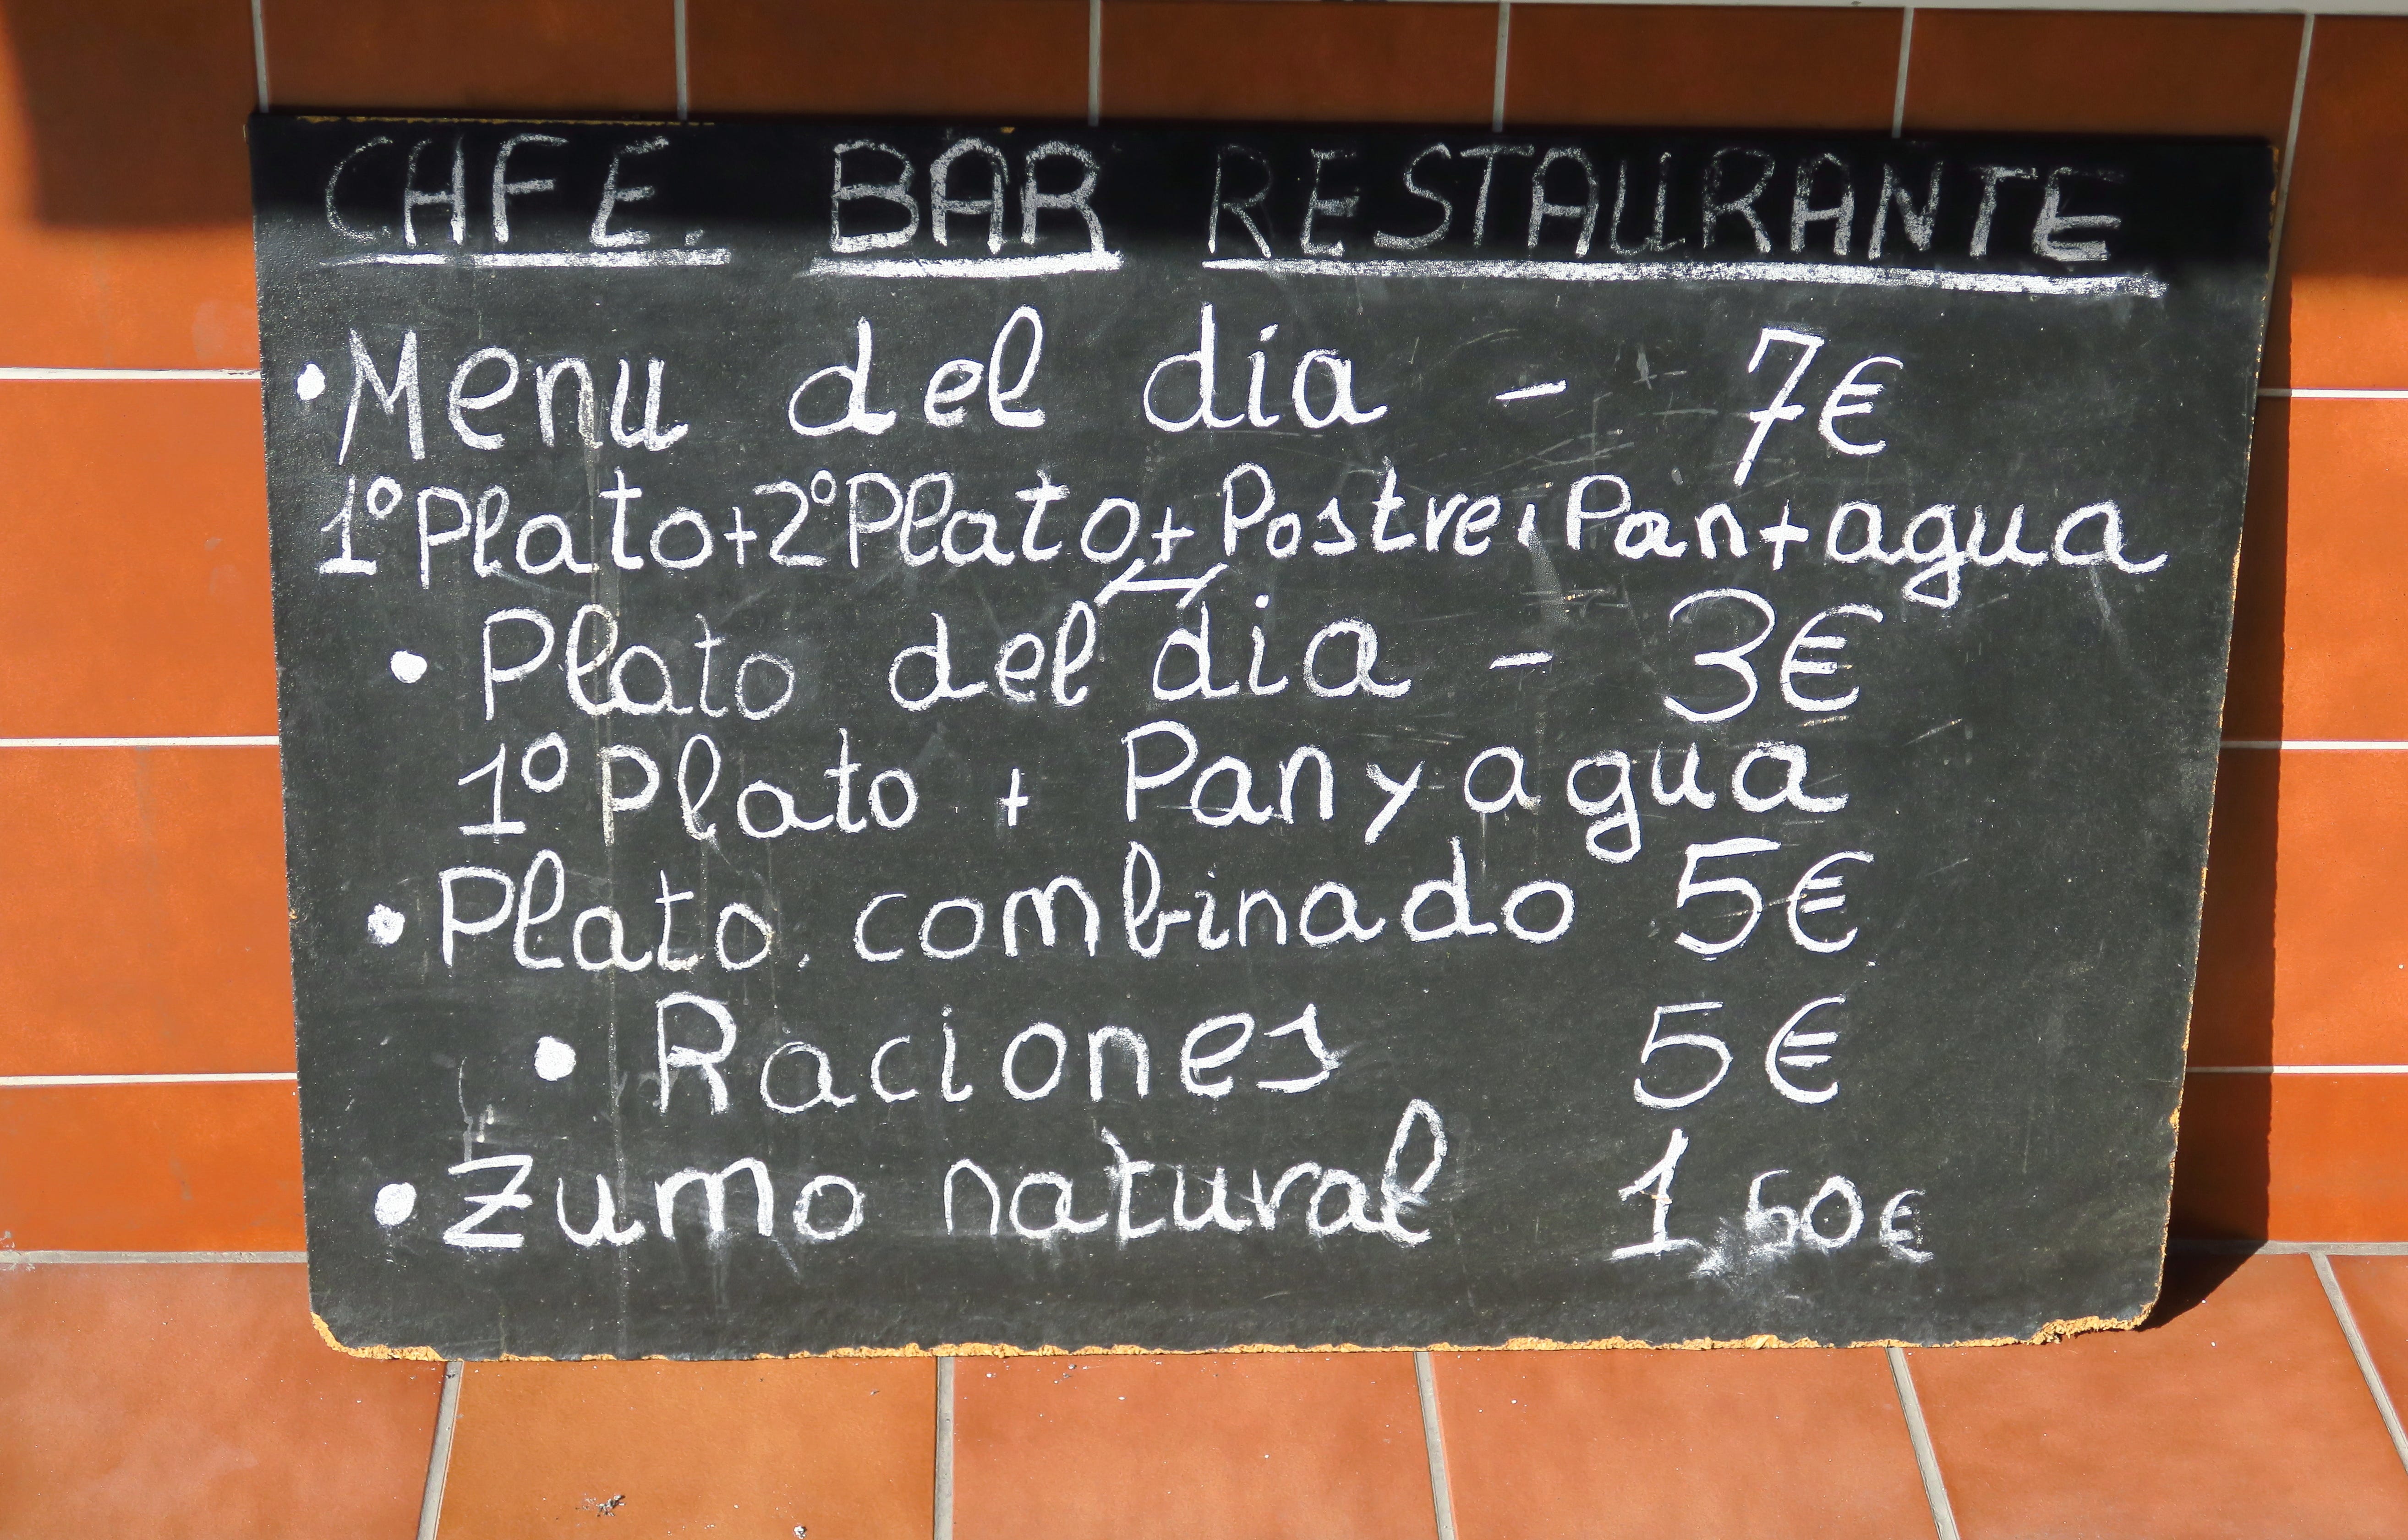 CAFE. BAR RESTAURANTE
•Menu del dia - 7€
1º Plato+2º Plato+Postre+Pan+agua
• Plato del dia - 3€
1º Plato + Pan y agua
• Plato. combinado 5€
• Raciones 5€
• Zumo natural 1,50€